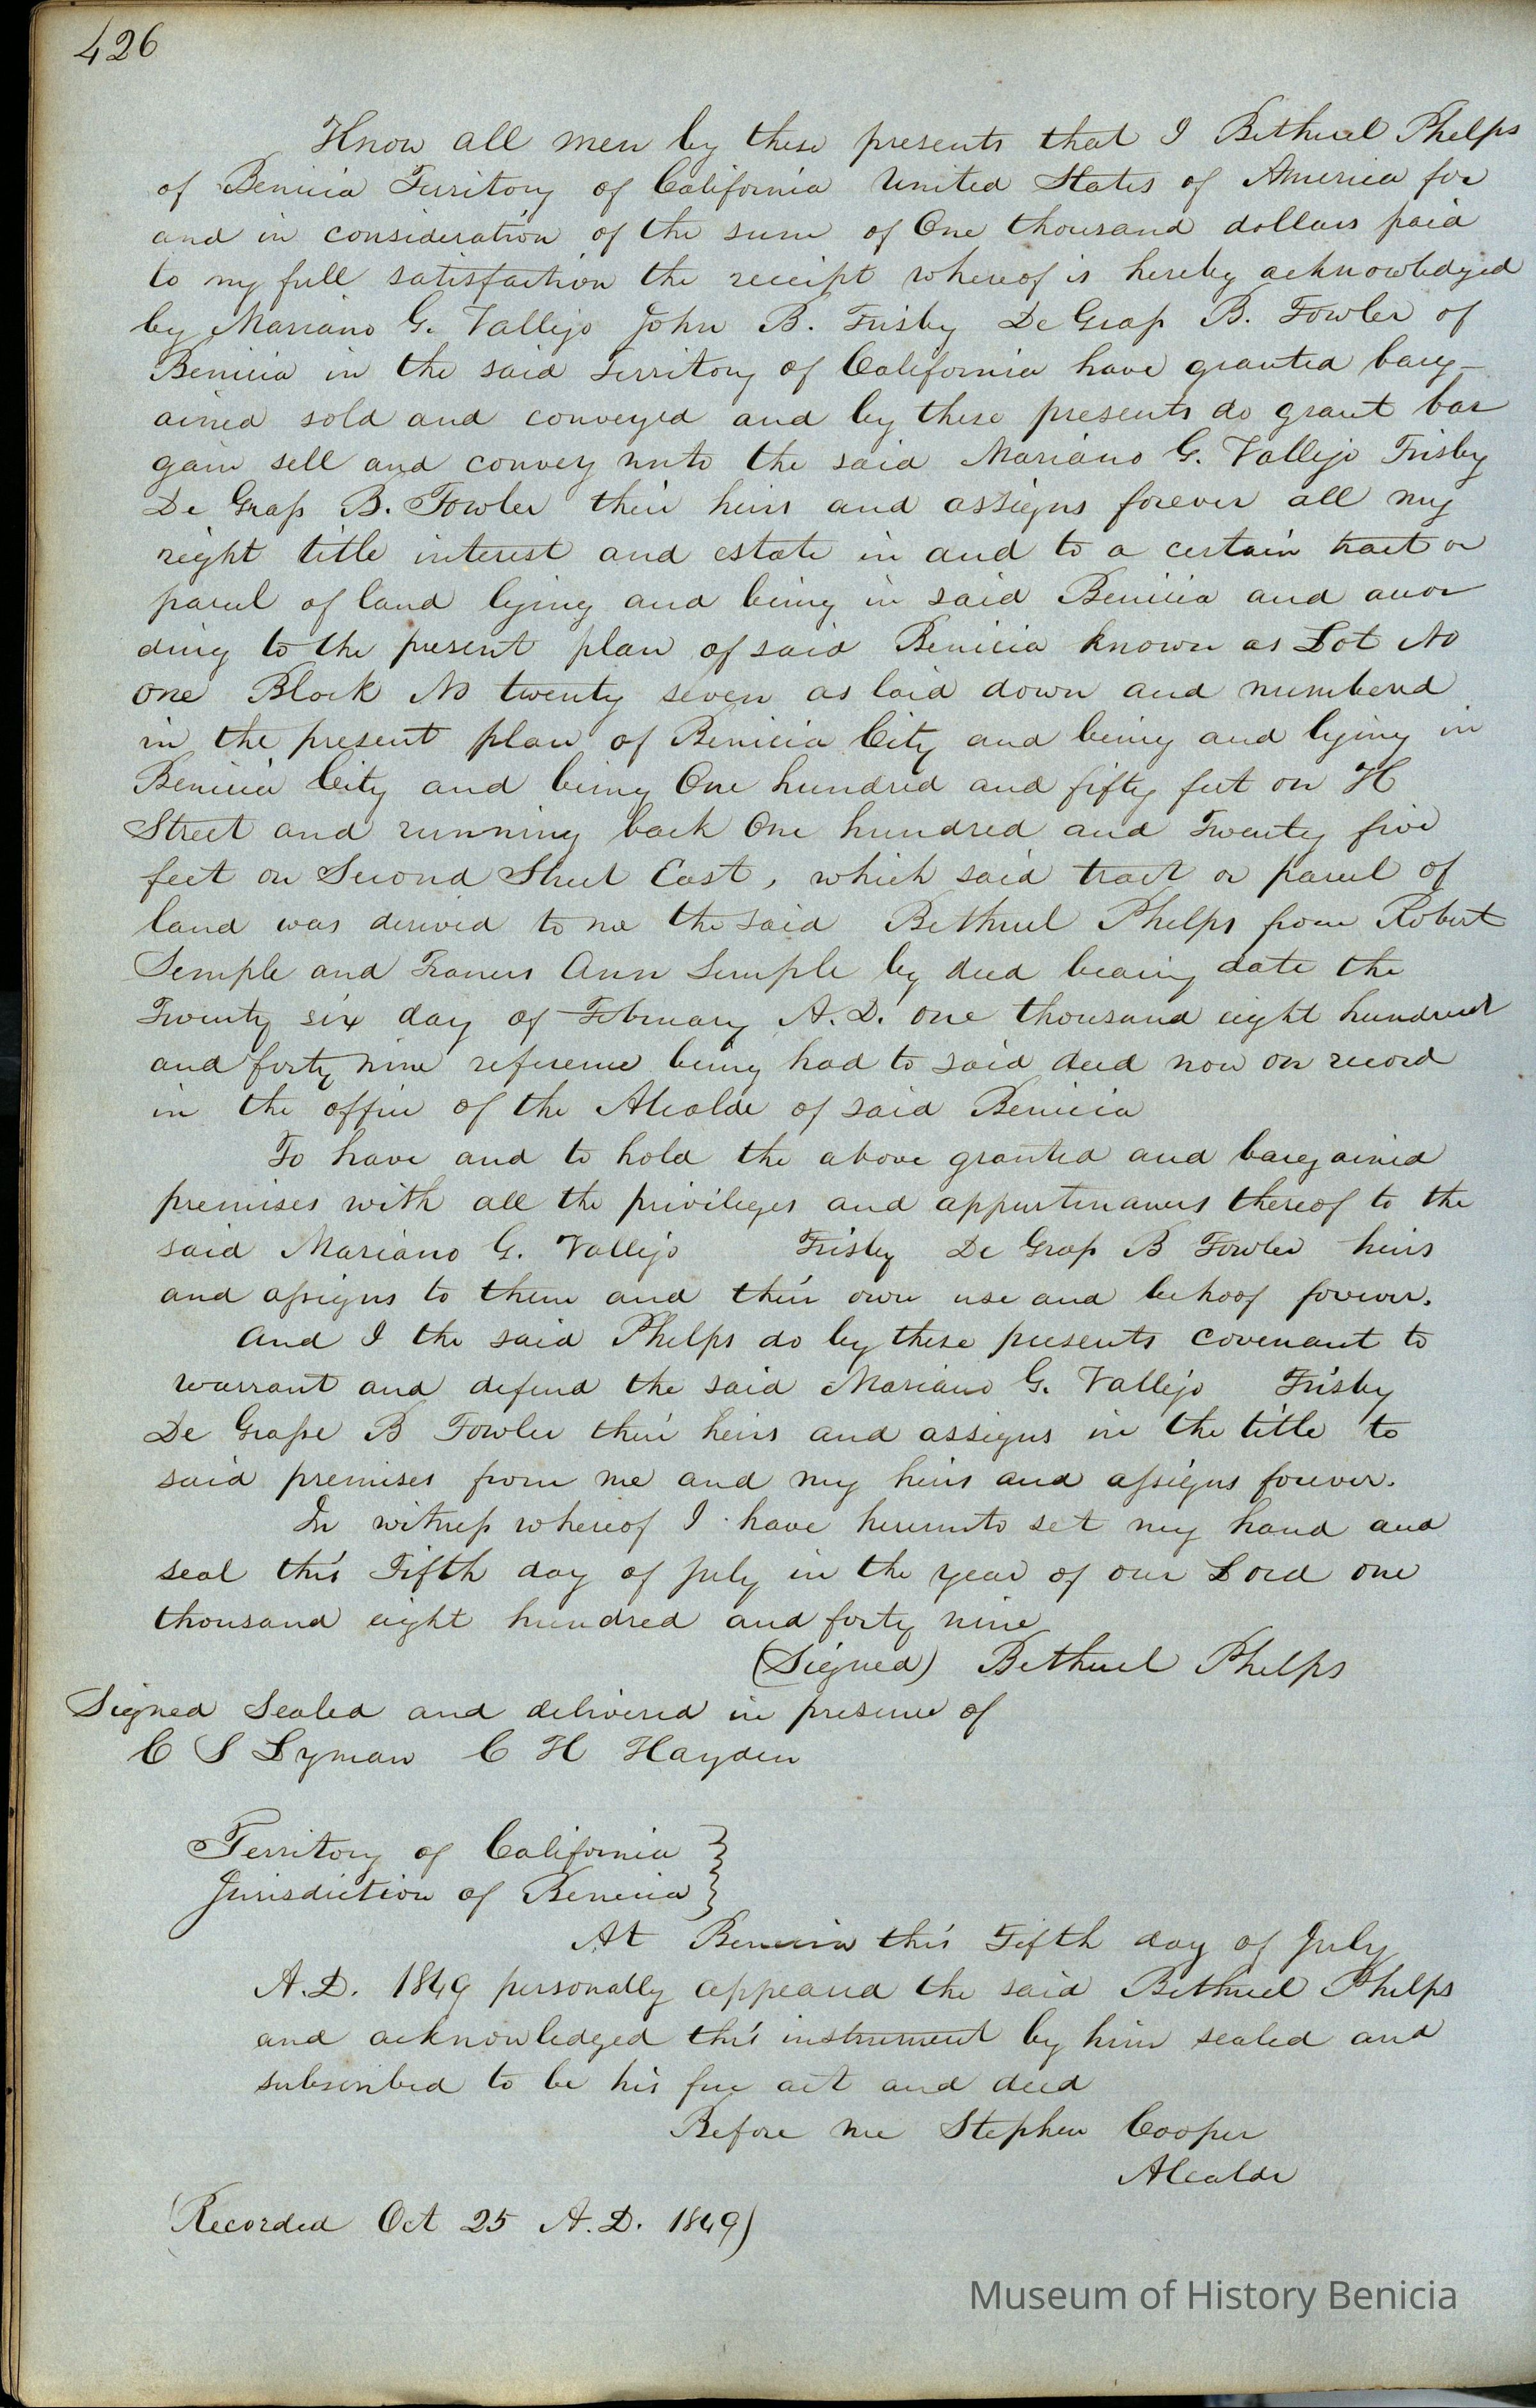 426
Know all men by these presents that I Bethuel Phelps
of Benicia Territory of California United States of America for
and in consideration of the sum of One thousand dollars paid
to my full satisfaction the receipt whereof is hereby acknowledged
by Mariano G. Vallejo John B. Frisby De Grass B. Fowler of
Benicia in the said Territory of California have granted barg-
ained sold and conveyed and by these presents do grant bar
gain sell and convey unto the said Mariano G. Vallejo Frisby
De Grass B. Fowler their heirs and assigns forever all my
right title interest and estate in and to a certain tract or
parcel of land lying and being in said Benicia and accor
ding to the present plan of said Benicia known as Lot No
one Block No twenty seven as laid down and numbered
in the present plan of Benicia City and being and lying in
Benicia City and being One hundred and fifty feet on H
Street and running back One hundred and Twenty five
feet on Second Street East, which said tract or parcel of
land was derived to me the said Bethuel Phelps from Robert
Semple and Frances Ann Semple by deed bearing date the
Twenty six day of February A.D. one thousand eight hundred
and forty nine reference being had to said deed now on record
in the office of the Alcalde of said Benicia
To have and to hold the above granted and bargained
premises with all the privileges and appurtenances thereof to the
said Mariano G. Vallejo Frisby De Grass B Fowler heirs
and assigns to them and their own use and behoof forever.
And I the said Phelps do by these presents covenant to
warrant and defend the said Mariano G. Vallejo Frisby
De Grasse B Fowler their heirs and assigns in the title to
said premises from me and my heirs and assigns forever.
In witness whereof I have hereunto set my hand and
seal this Fifth day of July in the year of our Lord one
thousand eight hundred and forty nine
(Signed) Bethuel Phelps
Signed Sealed and delivered in presence of
C S Lyman C H Hayden
Territory of California }
Jurisdiction of Benicia }
At Benicia this Fifth day of July
A.D. 1849 personally appeared the said Bethuel Phelps
and acknowledged this instrument by him sealed and
subscribed to be his free act and deed
Before me Stephen Cooper
Alcalde
(Recorded Oct 25 A.D. 1849)
Museum of History Benicia